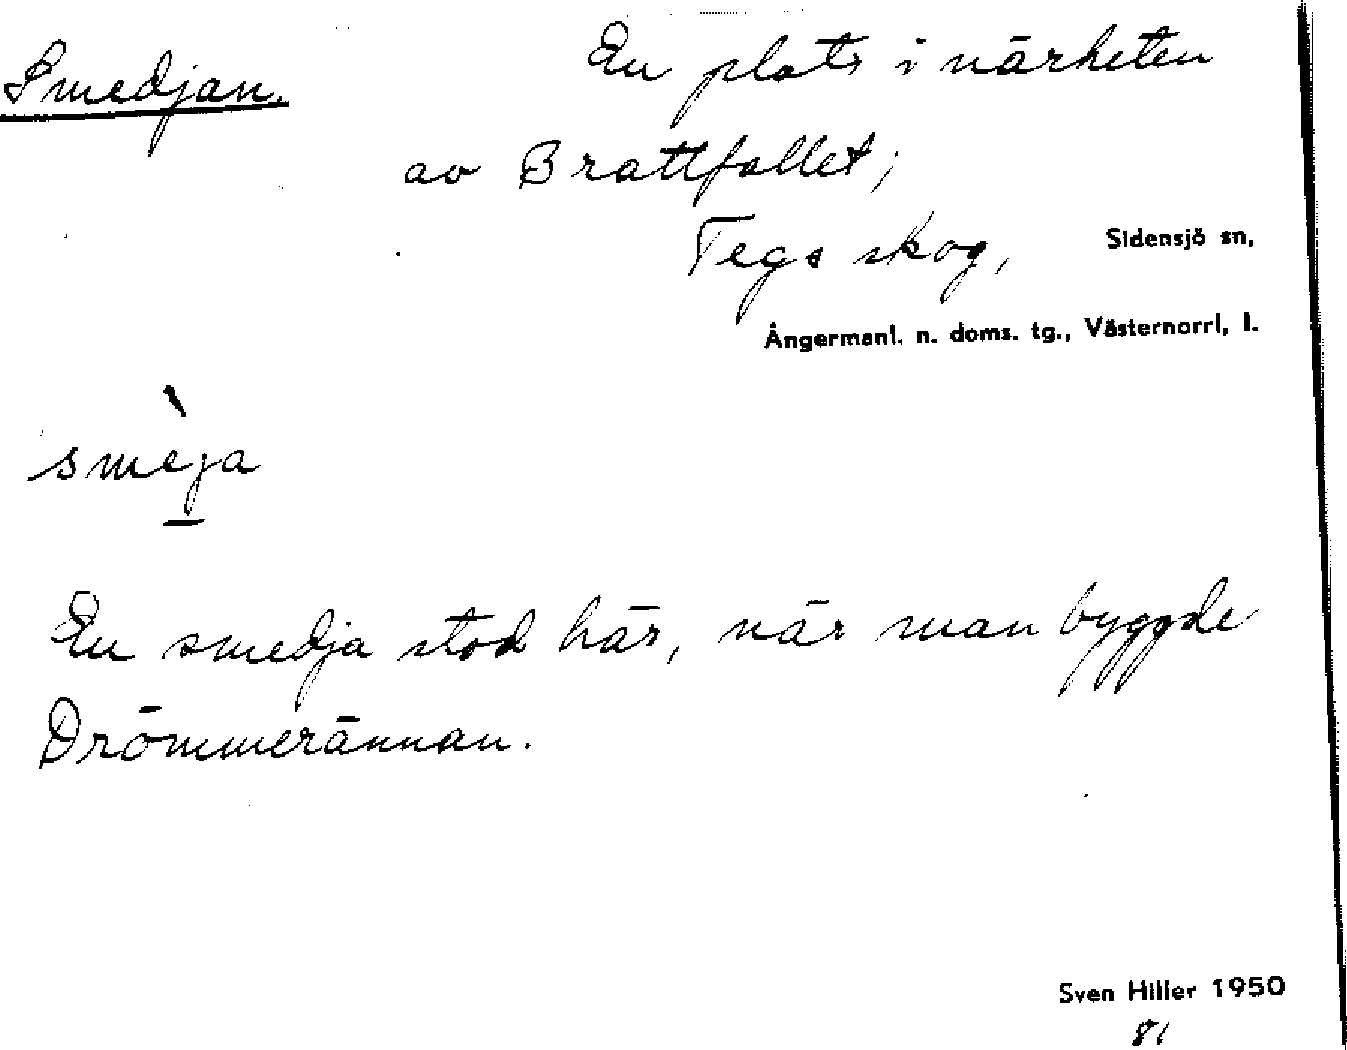 Smedjan. En plats i närheten
av Brattfallet;
Tegs skog, Sidensjö sn,
Ångermanl. n. doms. tg., Västernorrl, l.
smèja
En smedja stod här, när man byggde
Drömmerännan.
Sven Hiller 1950
81